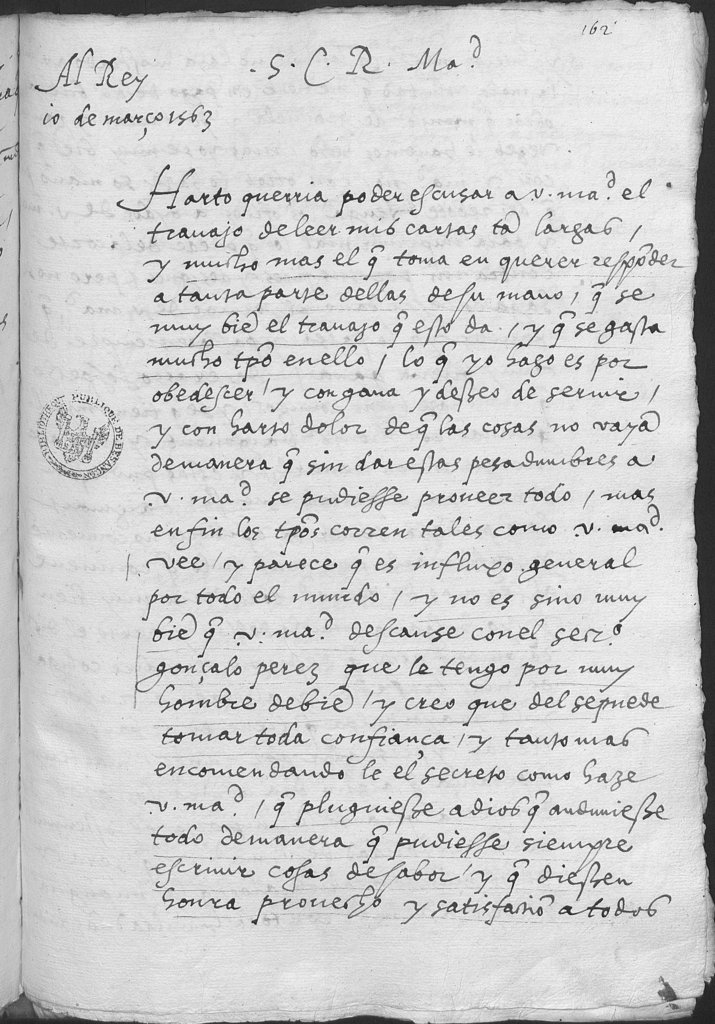 162
Al Rey
.S. C. R. Ma.d
io de março 1563
Harto querria poder escusar a v. ma.d el
travajo de leer mis cartas tã largas,
y mucho mas el q̃ toma en querer respõder
a tanta parte dellas de su mano, q̃ se
muy biẽ el travajo q̃ esto da, y q̃ se gasta
mucho tpõ en ello, lo q̃ yo hago es por
obedescer, y con gana y desseo de servir,
y con harto dolor de q̃ las cosas no vayã
de manera q̃ sin dar estas pesadumbres a
v. ma.d se pudiesse proveer todo, mas
en fin los tpõs corren tales como v. ma.d
vee, y parece q̃ es influxo general
por todo el mundo, y no es sino muy
biẽ q̃ v. ma.d descanse con el secr.o
gonçalo perez que le tengo por muy
hombre de biẽ, y creo que del se puede
tomar toda confiança, y tanto mas
encomendando le el secreto como haze
v. ma.d, q̃ pluguiesse a dios q̃ anduviesse
todo de manera q̃ pudiesse siempre
escrivir cosas de sabor, y q̃ diessen
honra provecho y satisfatiõ a todos
BIBLIOTHEQUE PUBLIQUE DE BESANÇON